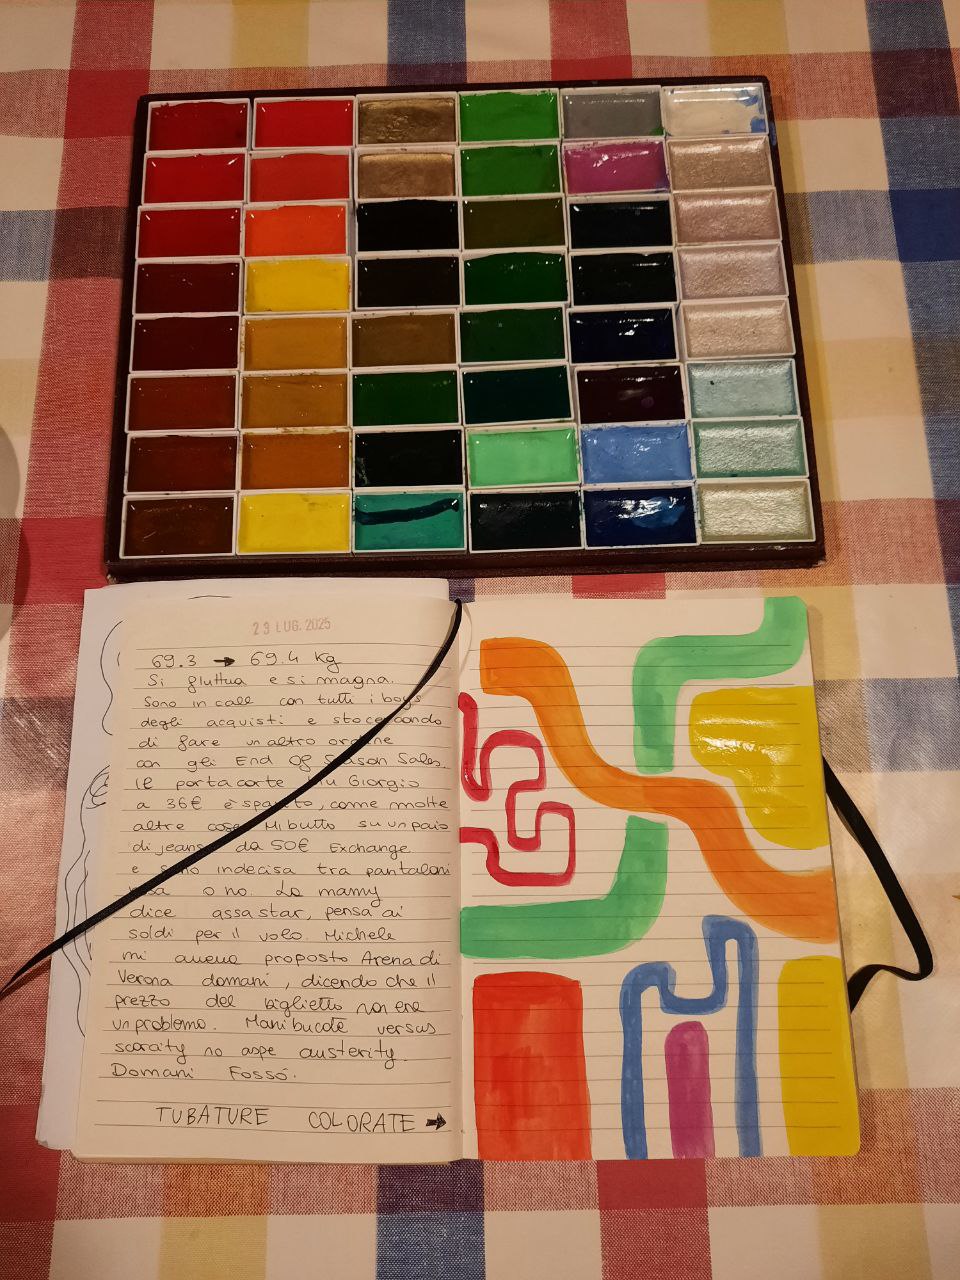 23 LUG. 2025
69.3 → 69.4 kg
Si fluttua e si magna.
Sono in call con tutti i boys
degli acquisti e sto cercando
di fare un altro ordine
con gli End Of Season Sales.
Il portacarte Giorgio
a 36€ è sparito, come molte
altre cose. Mi butto su un paio
di jeans da 50€ Exchange
e sono indecisa tra pantaloni
o no. La mamy
dice assa star, pensa ai
soldi per il volo. Michele
mi aveva proposto Arena di
Verona domani, dicendo che il
prezzo del biglietto non era
un problema. Mani bucate versus
scarcity no aspe austerity.
Domani Fossò.
TUBATURE COLORATE →